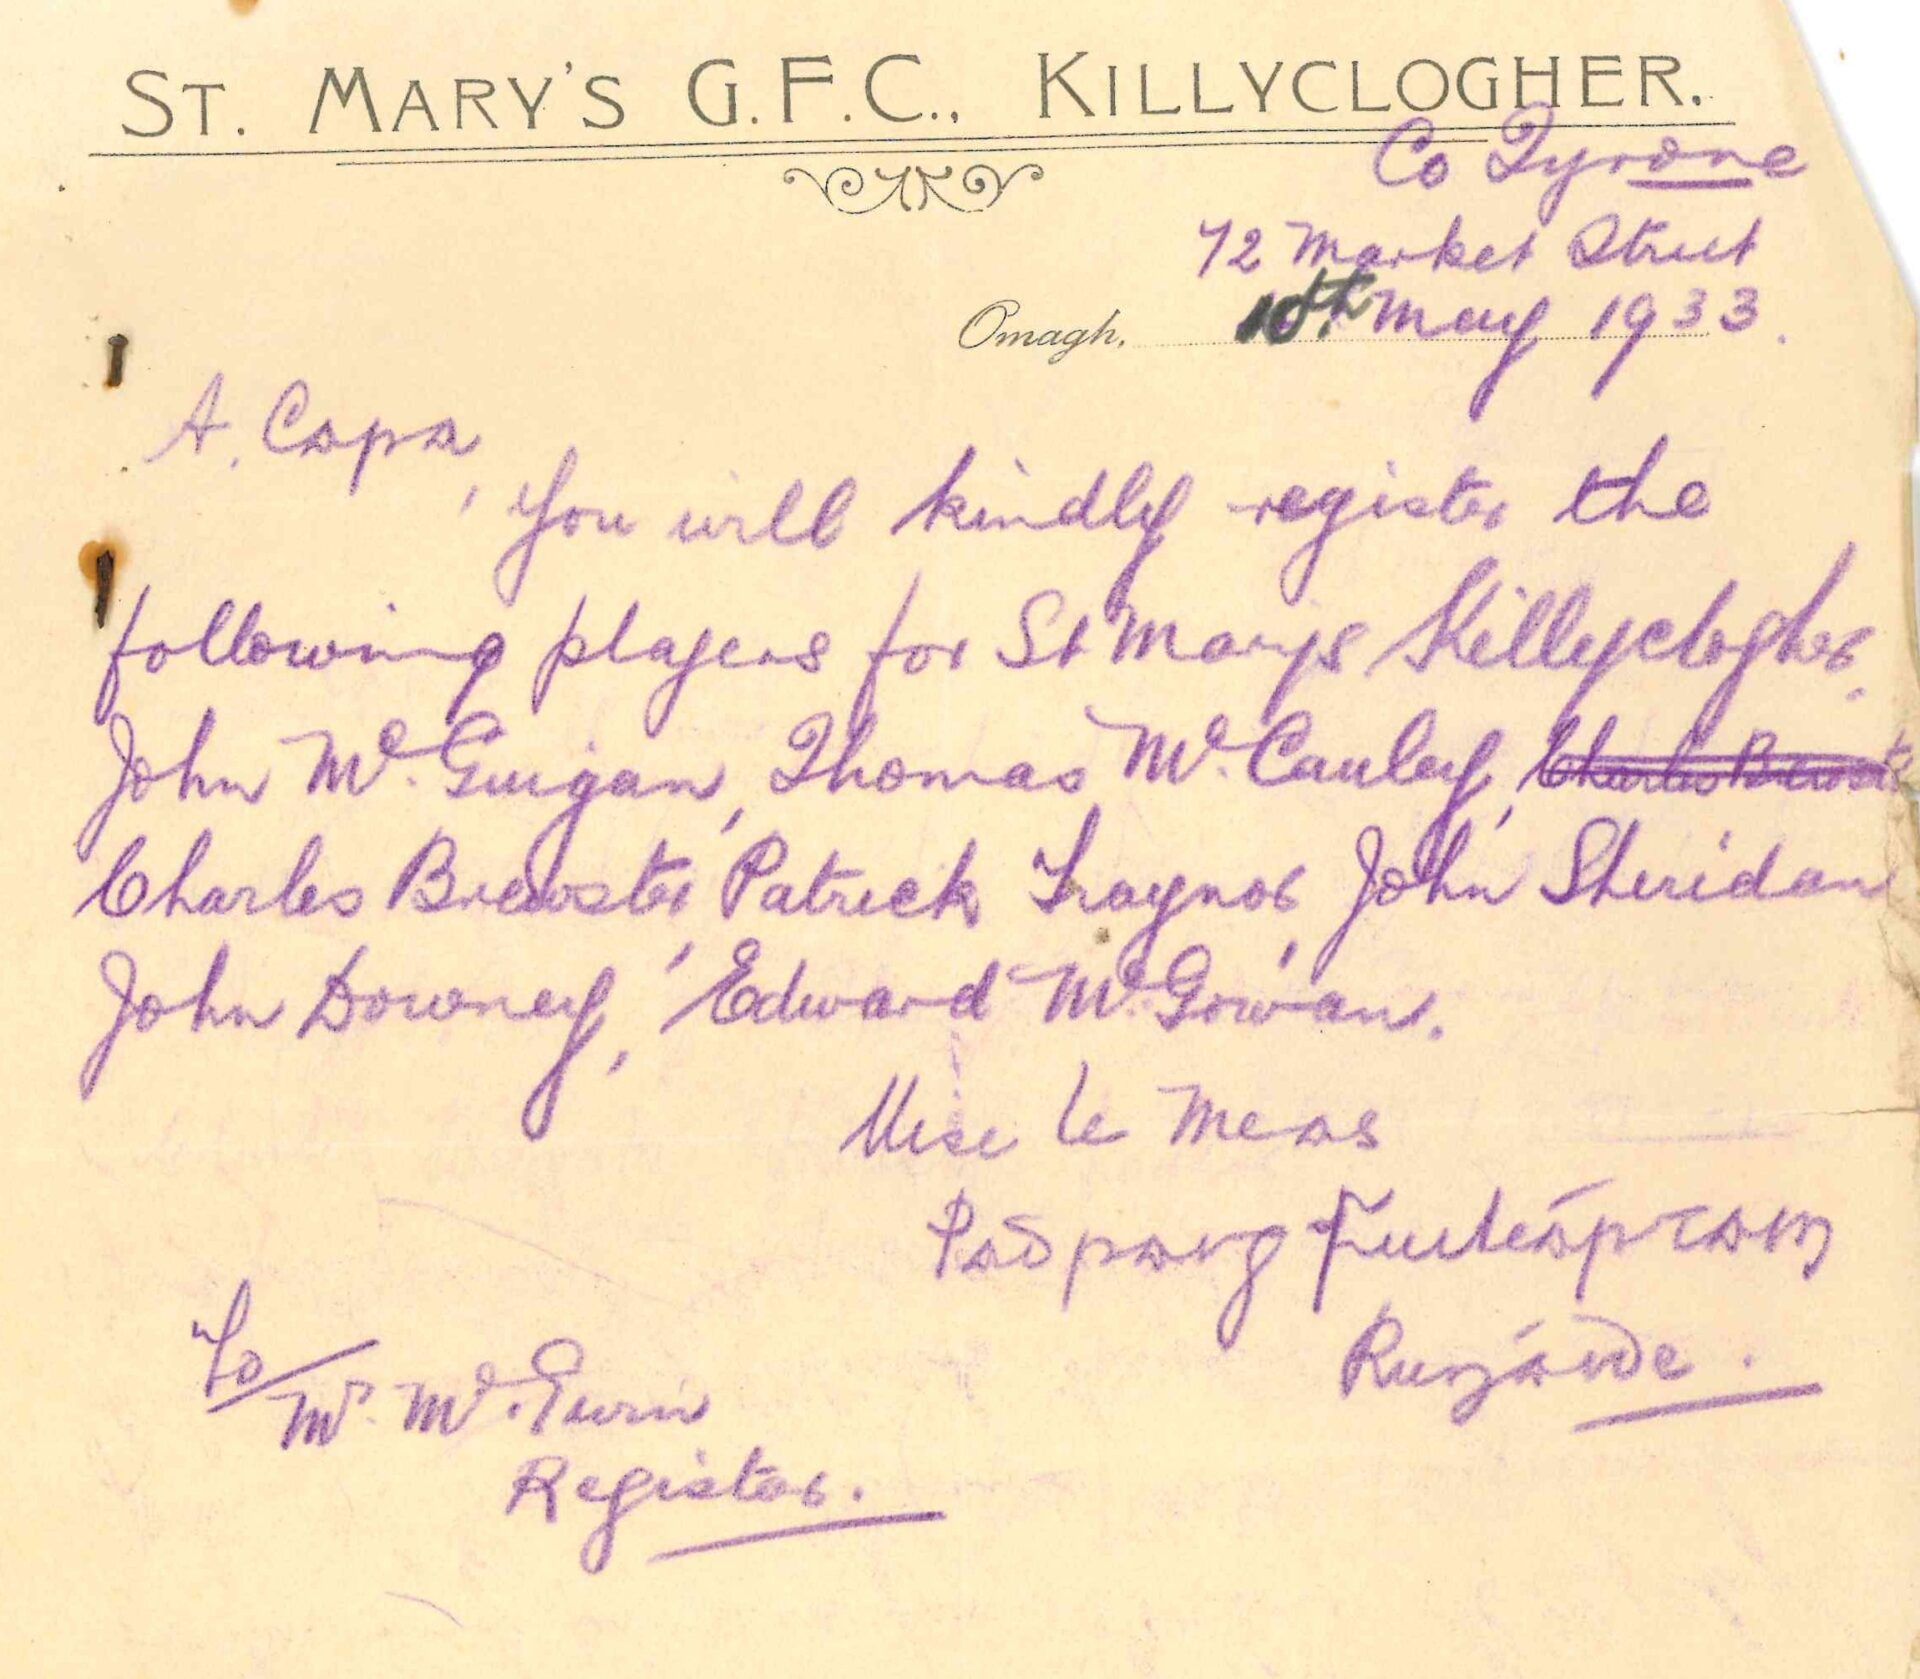 ST. MARY'S G.F.C., KILLYCLOGHER.
Co Tyrone
72 Market Street
Omagh, 10th May 1933.
A. Capa,
You will kindly register the
following players for St Marys Killyclogher.
John Mc.Guigan, Thomas Mc.Cauley, Charles Brewster
Charles Brewster, Patrick Traynor, John Sheridan
John Downey, Edward Mc.Gowan.
Mise le meas
Pádraig
Rúnaidhe.
To/
Mr. Mc.Gurin
Register.